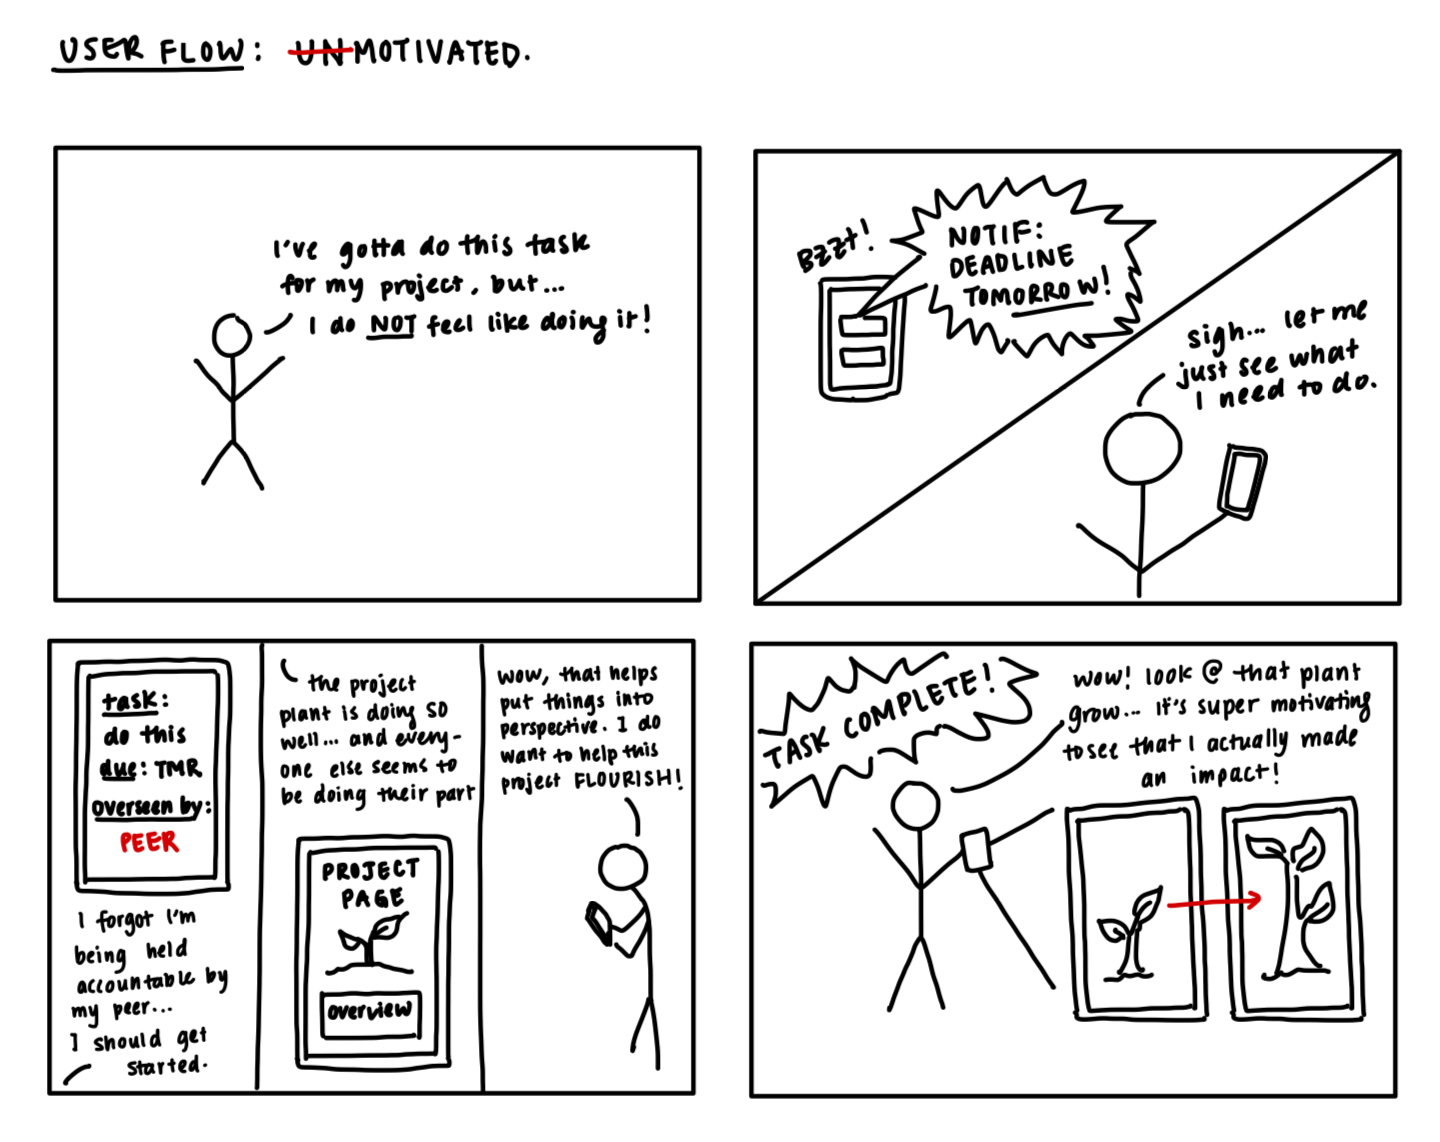 USER FLOW: UNMOTIVATED.
I've gotta do this task
for my project, but...
I do NOT feel like doing it!
Bzzt!
NOTIF:
DEADLINE
TOMORROW!
sigh... let me
just see what
I need to do.
task:
do this
due: TMR
overseen by:
PEER
I forgot I'm
being held
accountable by
my peer...
I should get
started.
the project
plant is doing SO
well... and every-
one else seems to
be doing their part
PROJECT
PAGE
overview
wow, that helps
put things into
perspective. I do
want to help this
project FLOURISH!
TASK COMPLETE!
wow! look @ that plant
grow... it's super motivating
to see that I actually made
an impact!